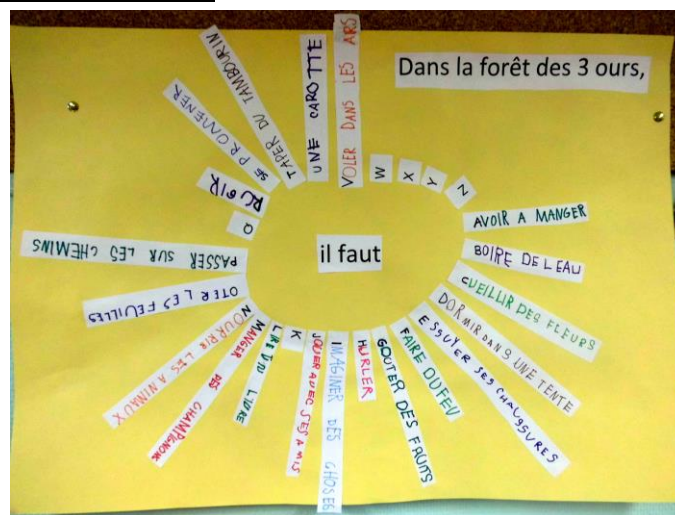 Dans la forêt des 3 ours,
il faut
AVOIR A MANGER
BOIRE DE L EAU
CUEILLIR DES FLEURS
DORMIR DANS UNE TENTE
ESSUYER SES CHAUSSURES
FAIRE DU FEU
GOUTER DES FRUITS
HURLER
IMAGINER DES CHOSES
JOUER AVEC SES AMIS
K
LIRE DU LIVRE
MANGER DES CHAMPIGNON
NOURRIR LES ANIMAUX
OTER LES FEUILLES
PASSER SUR LES CHEMINS
Q
RUGIR
SE PROMENER
TAPER DU TAMBOURIN
UNE CAROTTE
VOLER DANS LES ARS
W
X
Y
Z